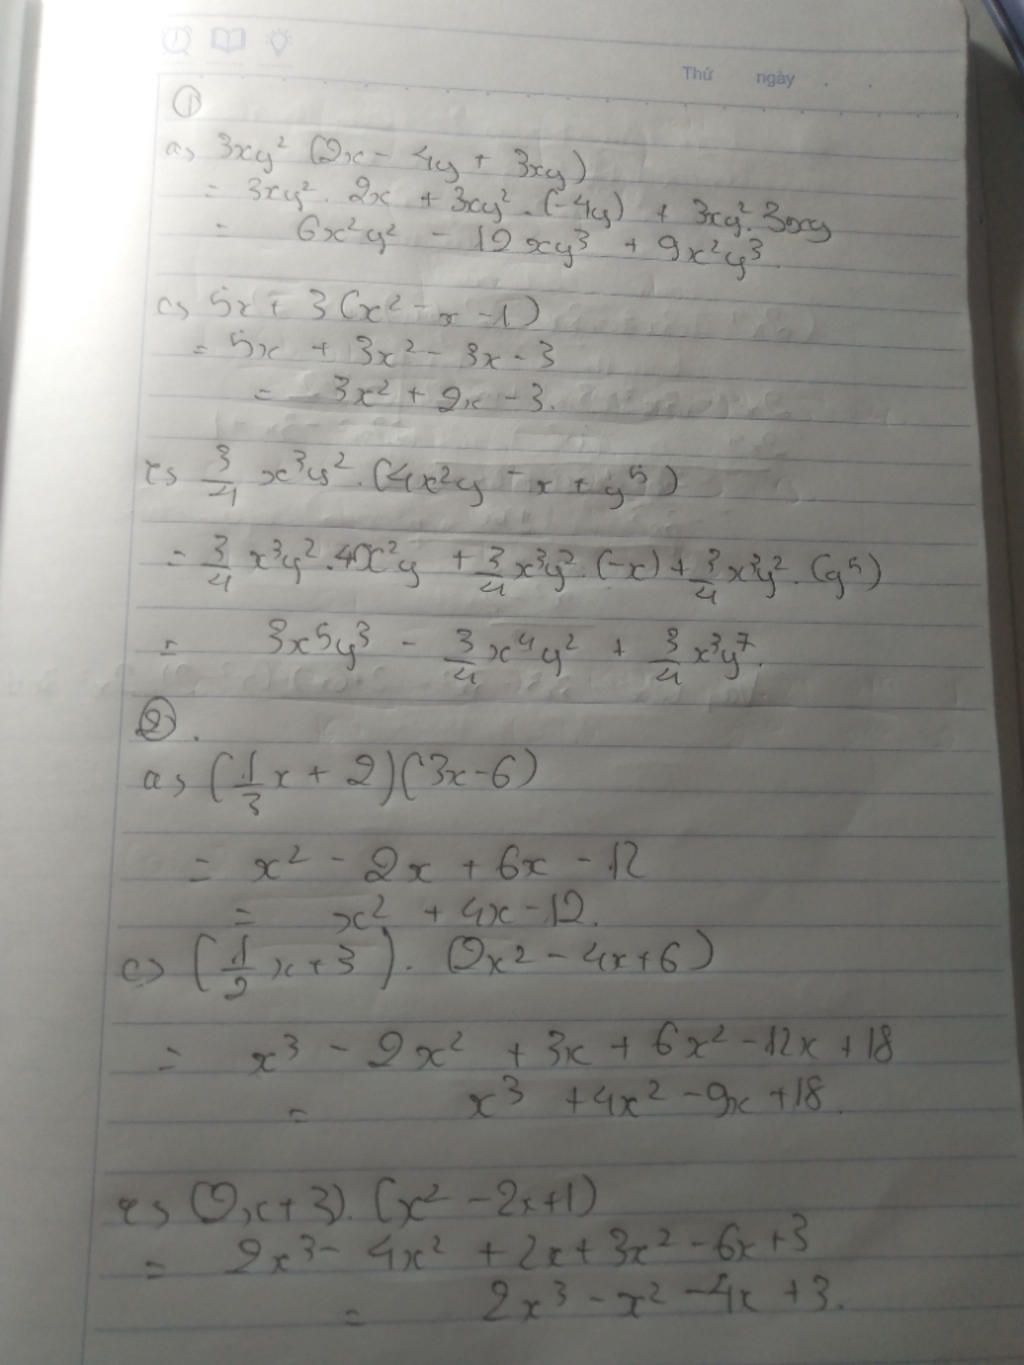 Thứ ngày
①
a, 3xy² (2x - 4y + 3xy)
= 3xy² . 2x + 3xy² . (-4y) + 3xy² . 3xy
= 6x²y² - 12xy³ + 9x²y³
c, 5x + 3(x² - x - 1)
= 5x + 3x² - 3x - 3
= 3x² + 2x - 3.
e, 3/4 x³y² . (4x²y - x + y⁵)
= 3/4 x³y² . 4x²y + 3/4 x³y² . (-x) + 3/4 x³y² . (y⁵)
= 3x⁵y³ - 3/4 x⁴y² + 3/4 x³y⁷.
② .
a, (1/3 x + 2)(3x - 6)
= x² - 2x + 6x - 12
= x² + 4x - 12.
c, (1/2 x + 3) . (2x² - 4x + 6)
= x³ - 2x² + 3x + 6x² - 12x + 18
= x³ + 4x² - 9x + 18.
e, (2x + 3) . (x² - 2x + 1)
= 2x³ - 4x² + 2x + 3x² - 6x + 3
= 2x³ - x² - 4x + 3.